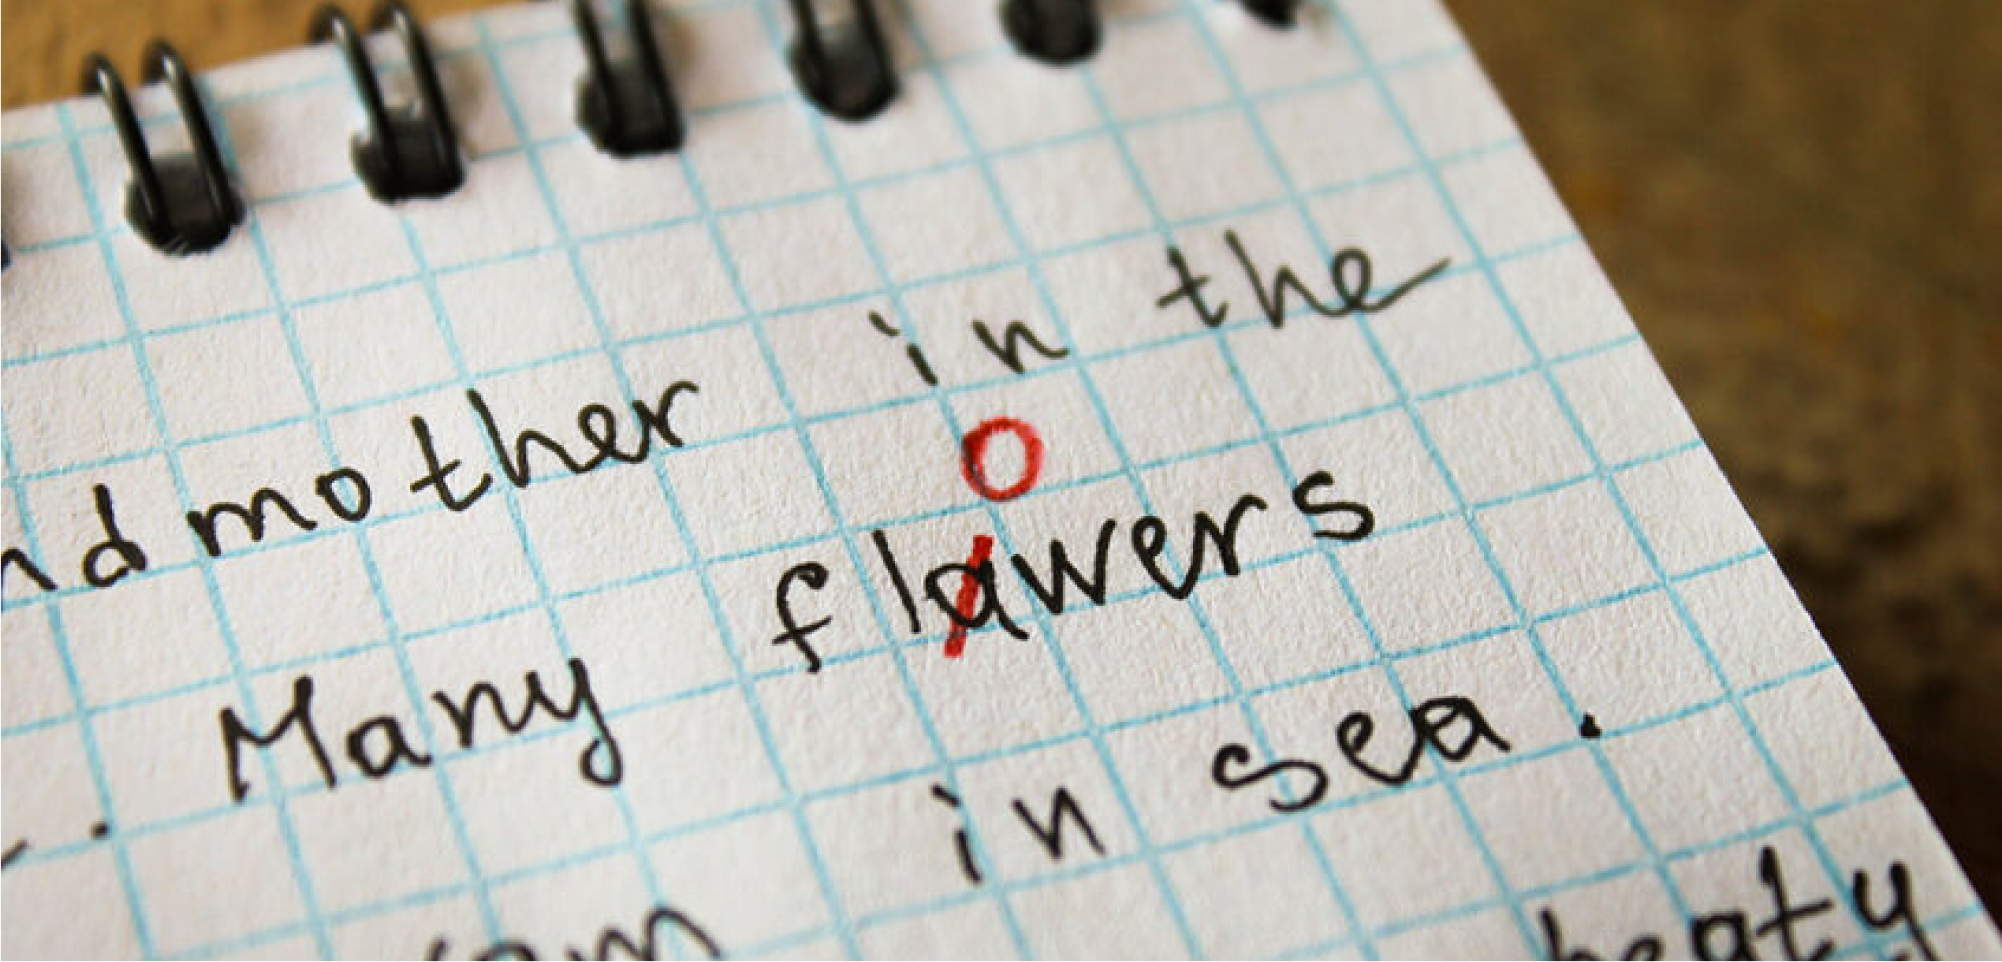 ndmother in the
o
. Many flawers
in sea.
beaty